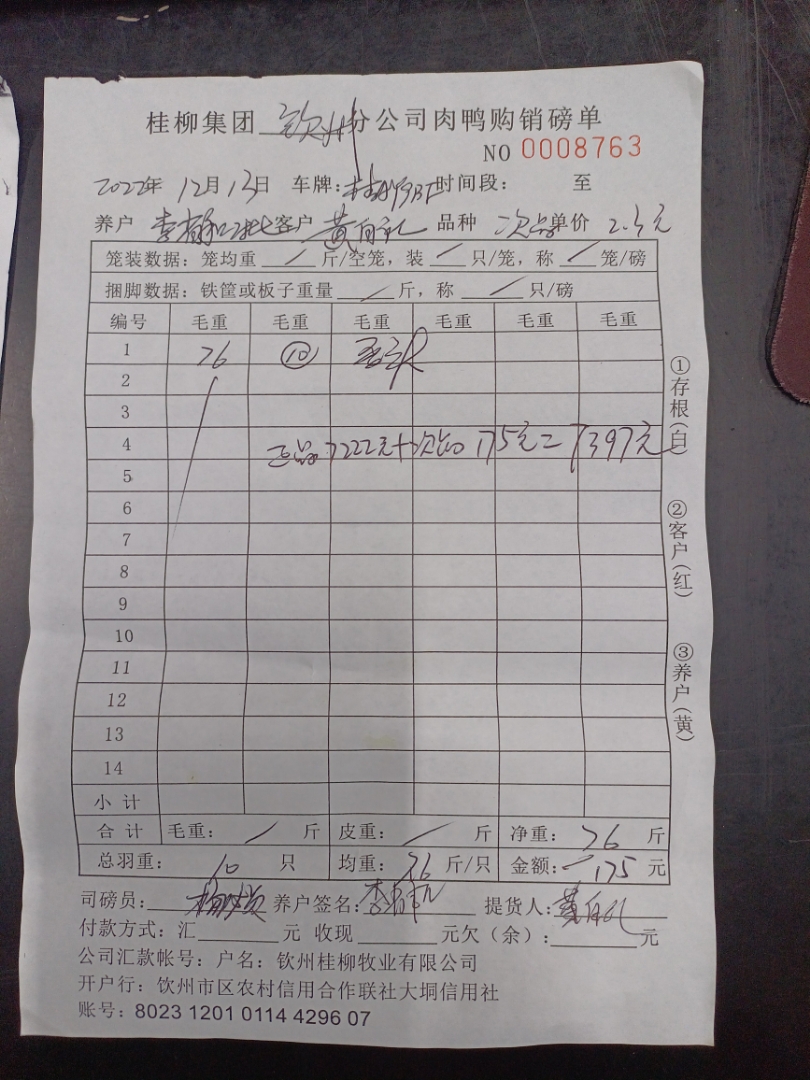 桂柳集团 钦州 分公司肉鸭购销磅单
NO 0008763
2022年 12月 13日 车牌: 时间段: 至
养户 客户 黄自礼 品种 次品 单价 2.3元
笼装数据:笼均重 / 斤/空笼,装 / 只/笼,称 / 笼/磅
捆脚数据:铁筐或板子重量 / 斤,称 / 只/磅
编号 毛重 毛重 毛重 毛重 毛重 毛重
1 76 ⑩
2
3
4 正品7222元+次品175元=7397元
5
6
7
8
9
10
11
12
13
14
小计
合计 毛重: / 斤 皮重: / 斤 净重: 76 斤
总羽重: 10 只 均重: 7.6 斤/只 金额: 175 元
司磅员: 养户签名: 提货人: 黄自礼
付款方式:汇 元 收现 元欠(余): 元
公司汇款帐号:户名:钦州桂柳牧业有限公司
开户行:钦州市区农村信用合作联社大垌信用社
账号:8023 1201 0114 4296 07
①存根(白)
②客户(红)
③养户(黄)